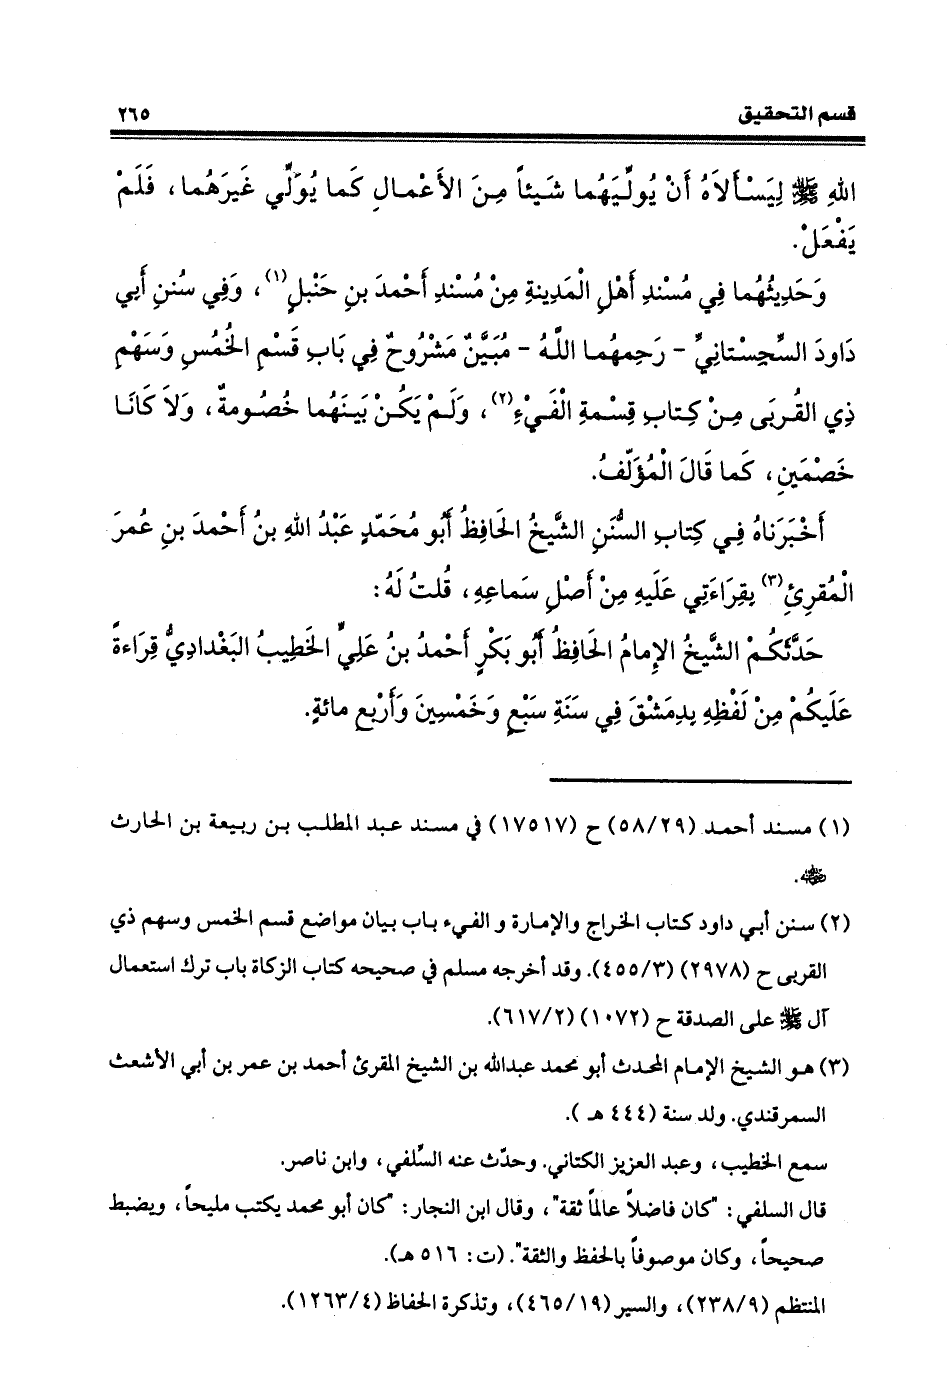 قسم التحقيق ٢٦٥
اللهِ ﷺ لِيَسْأَلاَهُ أَنْ يُولِّيَهُما شَيئاً مِنَ الأَعْمالِ كَما يُوَلِّي غَيرَهُما، فَلَمْ
يَفْعَلْ.
وَحَدِيثُهُما فِي مُسْنَدِ أَهْلِ الْمَدِينةِ مِنْ مُسْنَدِ أَحْمَدَ بنِ حَنْبَلٍ(١)، وَفِي سُننِ أَبِي
دَاودَ السِّجِسْتانِيِّ - رَحِمهُما اللَّهُ - مُبَيَّنٌ مَشْرُوحٌ فِي بَابِ قَسْمِ الخُمُسِ وَسَهْمِ
ذِي القُربَى مِنْ كِتابِ قِسْمةِ الْفَيْءِ(٢)، وَلَمْ يَكُنْ بَينَهُما خُصُومةٌ، وَلاَ كَانَا
خَصْمَينِ، كَما قَالَ الْمُؤَلِّفُ.
أَخْبَرَناهُ فِي كِتابِ السُّنَنِ الشَّيخُ الحَافِظُ أَبُو مُحَمَّدٍ عَبْدُ اللهِ بنُ أَحْمدَ بنِ عُمَرَ
الْمُقرِئِ(٣) بِقِرَاءَتِي عَلَيهِ مِنْ أَصْلِ سَماعِهِ، قُلتُ لَهُ:
حَدَّثَكُمْ الشَّيخُ الإِمامُ الحَافِظُ أَبُو بَكْرٍ أَحْمدُ بنُ عَلِيٍّ الخَطِيبُ البَغْدادِيُّ قِرَاءةً
عَلَيكُمْ مِنْ لَفْظِهِ بِدِمَشْقَ فِي سَنَةِ سَبْعٍ وَخَمْسِينَ وَأَرْبعِ مائةٍ.
(١) مسند أحمد (٥٨/٢٩) ح (١٧٥١٧) في مسند عبد المطلب بن ربيعة بن الحارث
رضي الله عنه.
(٢) سنن أبي داود كتاب الخراج والإمارة و الفيء باب بيان مواضع قسم الخمس وسهم ذي
القربى ح (٢٩٧٨) (٤٥٥/٣). وقد أخرجه مسلم في صحيحه كتاب الزكاة باب ترك استعمال
آل ﷺ على الصدقة ح (١٠٧٢) (٦١٧/٢).
(٣) هو الشيخ الإمام المحدث أبو محمد عبدالله بن الشيخ المقرئ أحمد بن عمر بن أبي الأشعث
السمرقندي. ولد سنة (٤٤٤ هـ ).
سمع الخطيب، وعبد العزيز الكتاني. وحدّث عنه السِّلفي، وابن ناصر.
قال السلفي: "كان فاضلاً عالماً ثقة"، وقال ابن النجار: "كان أبو محمد يكتب مليحاً، ويضبط
صحيحاً، وكان موصوفاً بالحفظ والثقة". (ت: ٥١٦ هـ).
المنتظم (٢٣٨/٩)، والسير (٤٦٥/١٩)، وتذكرة الحفاظ (١٢٦٣/٤).